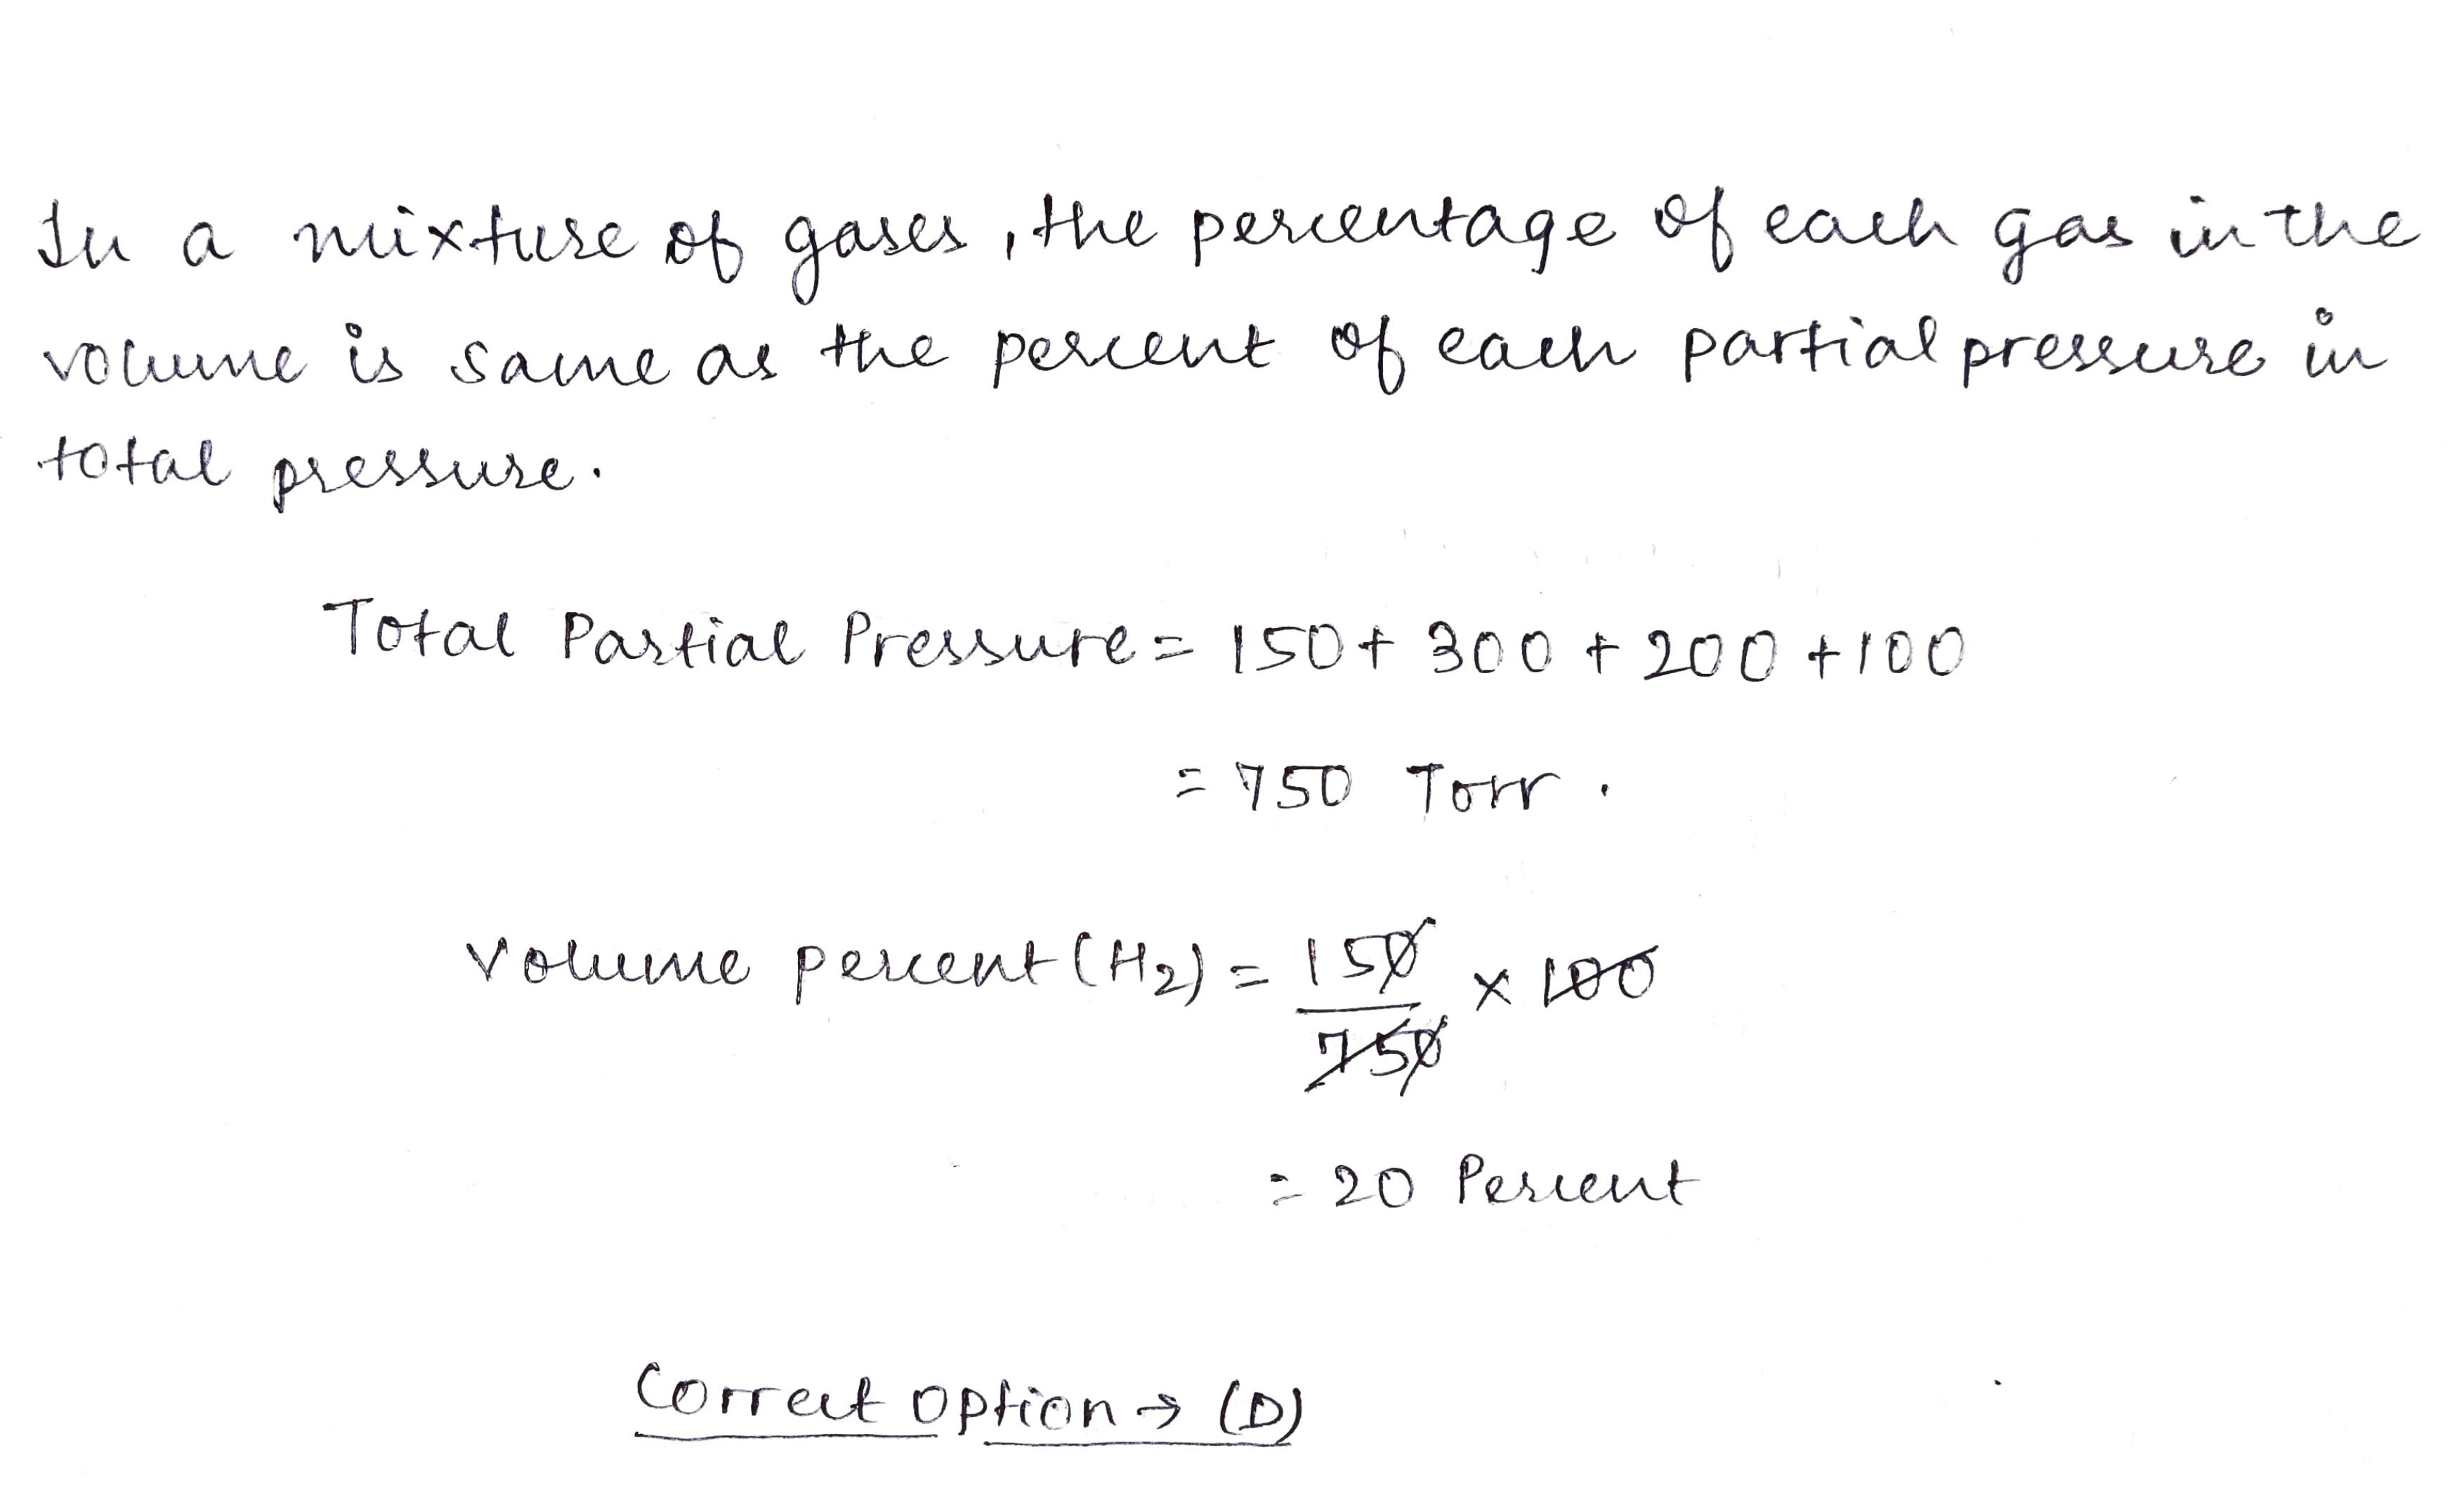 In a mixture of gases, the percentage of each gas in the
volume is same as the percent of each partial pressure in
total pressure.
Total Partial Pressure = 150 + 300 + 200 + 100
= 750 Torr.
Volume percent (H2) = 150/750 × 100
= 20 Percent
Correct option → (D)